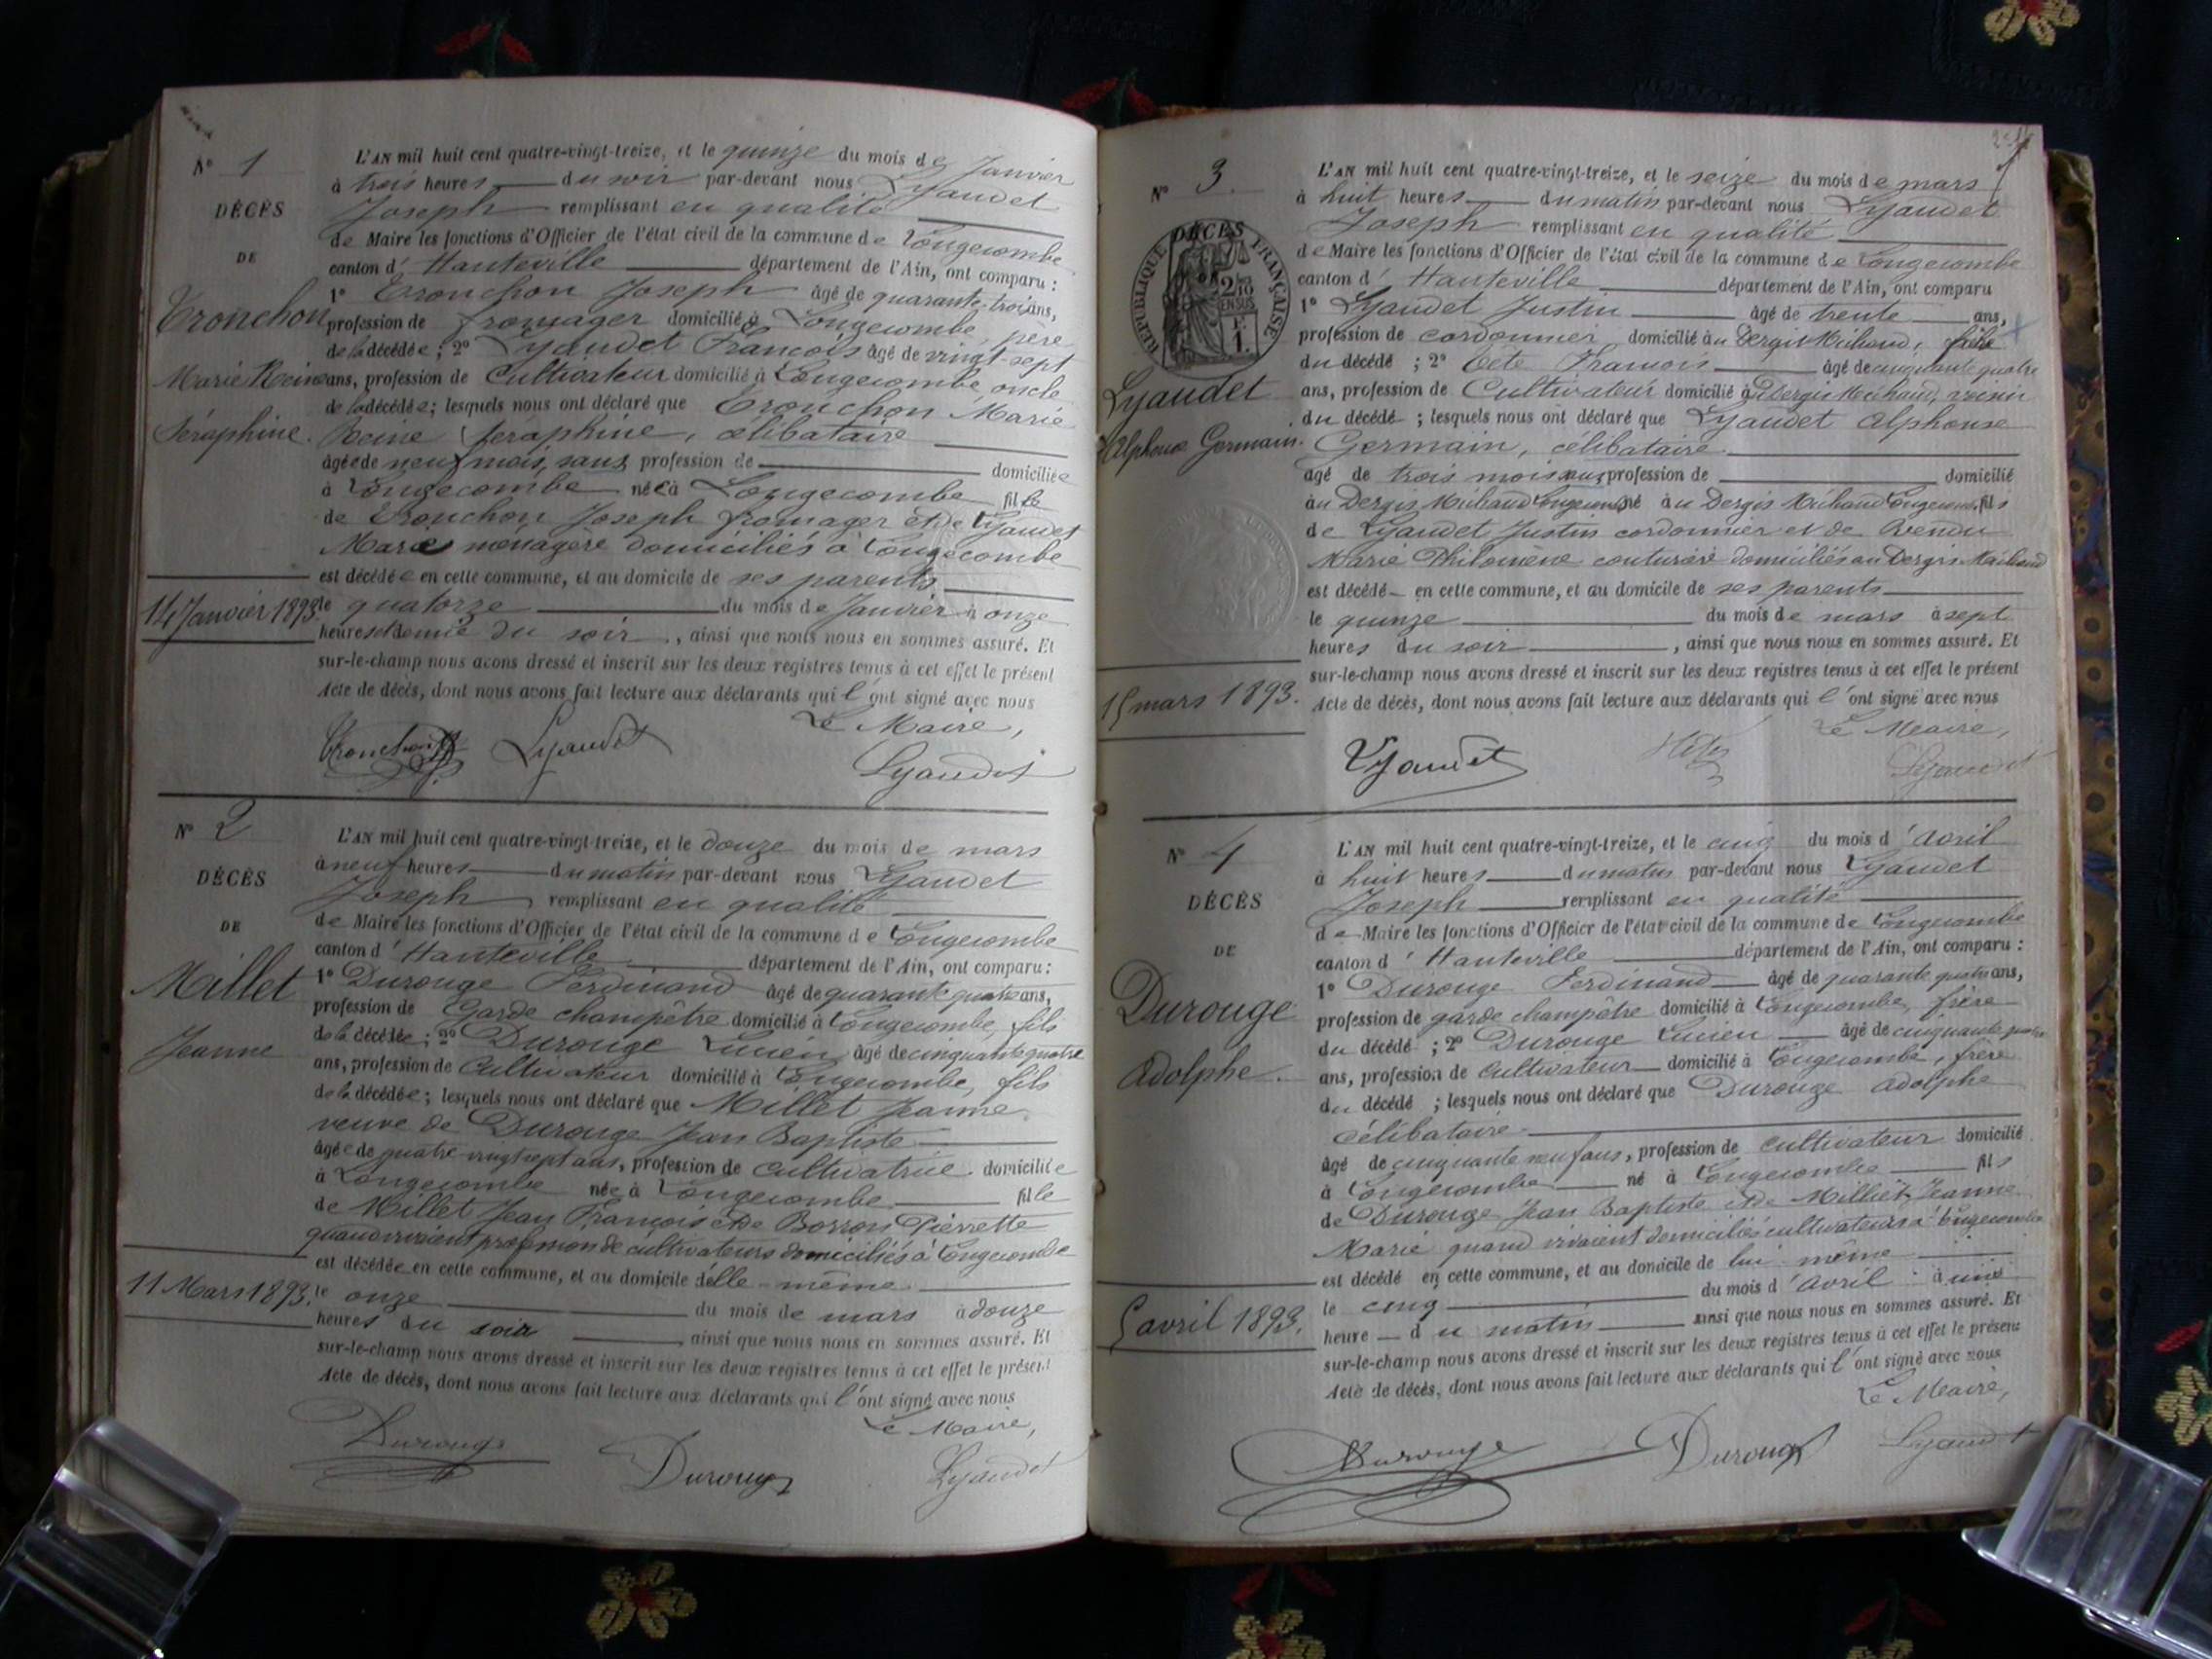 N° 1
DÉCÈS
DE
Tronchon
Marie Reine
Séraphine.
14 Janvier 1893.
L'AN mil huit cent quatre-vingt-treize, et le quinze du mois de Janvier
à trois heures du soir par-devant nous Lyaudet
Joseph remplissant en qualité
de Maire les fonctions d'Officier de l'état civil de la commune de Longecombe
canton d'Hauteville département de l'Ain, ont comparu :
1° Tronchon Joseph âgé de quarante-trois ans,
profession de fromager domicilié à Longecombe, père
de la décédée ; 2° Lyaudet François âgé de vingt-sept
ans, profession de Cultivateur domicilié à Longecombe oncle
de la décédée ; lesquels nous ont déclaré que Tronchon Marie
Reine Séraphine, célibataire
âgée de neuf mois, sans profession de domiciliée
à Longecombe née à Longecombe fille
de Tronchon Joseph fromager et de Lyaudet
Marie ménagère domiciliés à Longecombe
est décédée en cette commune, et au domicile de ses parents
le quatorze du mois de Janvier à onze
heures et demie du soir, ainsi que nous nous en sommes assuré. Et
sur-le-champ nous avons dressé et inscrit sur les deux registres tenus à cet effet le présent
Acte de décès, dont nous avons fait lecture aux déclarants qui l'ont signé avec nous
Le Maire,
Tronchon Lyaudet Lyaudet
N° 2
DÉCÈS
DE
Millet
Jeanne
11 Mars 1893.
L'AN mil huit cent quatre-vingt-treize, et le douze du mois de mars
à neuf heures du matin par-devant nous Lyaudet
Joseph remplissant en qualité
de Maire les fonctions d'Officier de l'état civil de la commune de Longecombe
canton d'Hauteville département de l'Ain, ont comparu :
1° Durouge Ferdinand âgé de quarante quatre ans,
profession de Garde champêtre domicilié à Longecombe, fils
de la décédée ; 2° Durouge Lucien âgé de cinquante quatre
ans, profession de Cultivateur domicilié à Longecombe, fils
de la décédée ; lesquels nous ont déclaré que Millet Jeanne
veuve de Durouge Jean Baptiste
âgée de quatre vingt sept ans, profession de cultivatrice domiciliée
à Longecombe née à Longecombe fille
de Millet Jean François et de Borron Pierrette
quand vivaient profession de cultivateurs domiciliés à Longecombe
est décédée en cette commune, et au domicile d'elle-même
le onze du mois de mars à douze
heures du soir ainsi que nous nous en sommes assuré. Et
sur-le-champ nous avons dressé et inscrit sur les deux registres tenus à cet effet le présent
Acte de décès, dont nous avons fait lecture aux déclarants qui l'ont signé avec nous
Le Maire,
Durouge Durouge Lyaudet
N° 3
RÉPUBLIQUE FRANÇAISE
DÉCÈS
2/10 EN SUS
1 F.
Lyaudet
Alphonse Germain.
15 mars 1893.
L'AN mil huit cent quatre-vingt-treize, et le seize du mois de mars
à huit heures du matin par-devant nous Lyaudet
Joseph remplissant en qualité
de Maire les fonctions d'Officier de l'état civil de la commune de Longecombe
canton d'Hauteville département de l'Ain, ont comparu
1° Lyaudet Justin âgé de trente ans,
profession de cordonnier domicilié au Dergis Michaud, père
du décédé ; 2° François âgé de cinquante quatre
ans, profession de Cultivateur domicilié à Dergis Michaud, voisin
du décédé ; lesquels nous ont déclaré que Lyaudet Alphonse
Germain, célibataire
âgé de trois mois sans profession de domicilié
au Dergis Michaud Longecombe né au Dergis Michaud Longecombe fils
de Lyaudet Justin cordonnier et de
Marie Philomène couturière domiciliés au Dergis Michaud
est décédé en cette commune, et au domicile de ses parents
le quinze du mois de mars à sept
heures du soir, ainsi que nous nous en sommes assuré. Et
sur-le-champ nous avons dressé et inscrit sur les deux registres tenus à cet effet le présent
Acte de décès, dont nous avons fait lecture aux déclarants qui l'ont signé avec nous
Le Maire,
Lyaudet Lyaudet
N° 4
DÉCÈS
DE
Durouge
Adolphe.
5 avril 1893.
L'AN mil huit cent quatre-vingt-treize, et le cinq du mois d'avril
à huit heures du matin par-devant nous Lyaudet
Joseph remplissant en qualité
de Maire les fonctions d'Officier de l'état civil de la commune de Longecombe
canton d'Hauteville département de l'Ain, ont comparu :
1° Durouge Ferdinand âgé de quarante quatre ans,
profession de garde champêtre domicilié à Longecombe, frère
du décédé ; 2° Durouge Lucien âgé de cinquante quatre
ans, profession de Cultivateur domicilié à Longecombe, frère
du décédé ; lesquels nous ont déclaré que Durouge Adolphe
célibataire
âgé de cinquante neuf ans, profession de cultivateur domicilié
à Longecombe né à Longecombe fils
de Durouge Jean Baptiste et de Milliet Jeanne
Marie quand vivaient domiciliés cultivateurs à Longecombe
est décédé en cette commune, et au domicile de lui-même
le cinq du mois d'avril à une
heure du matin ainsi que nous nous en sommes assuré. Et
sur-le-champ nous avons dressé et inscrit sur les deux registres tenus à cet effet le présent
Acte de décès, dont nous avons fait lecture aux déclarants qui l'ont signé avec nous
Le Maire,
Durouge Durouge Lyaudet